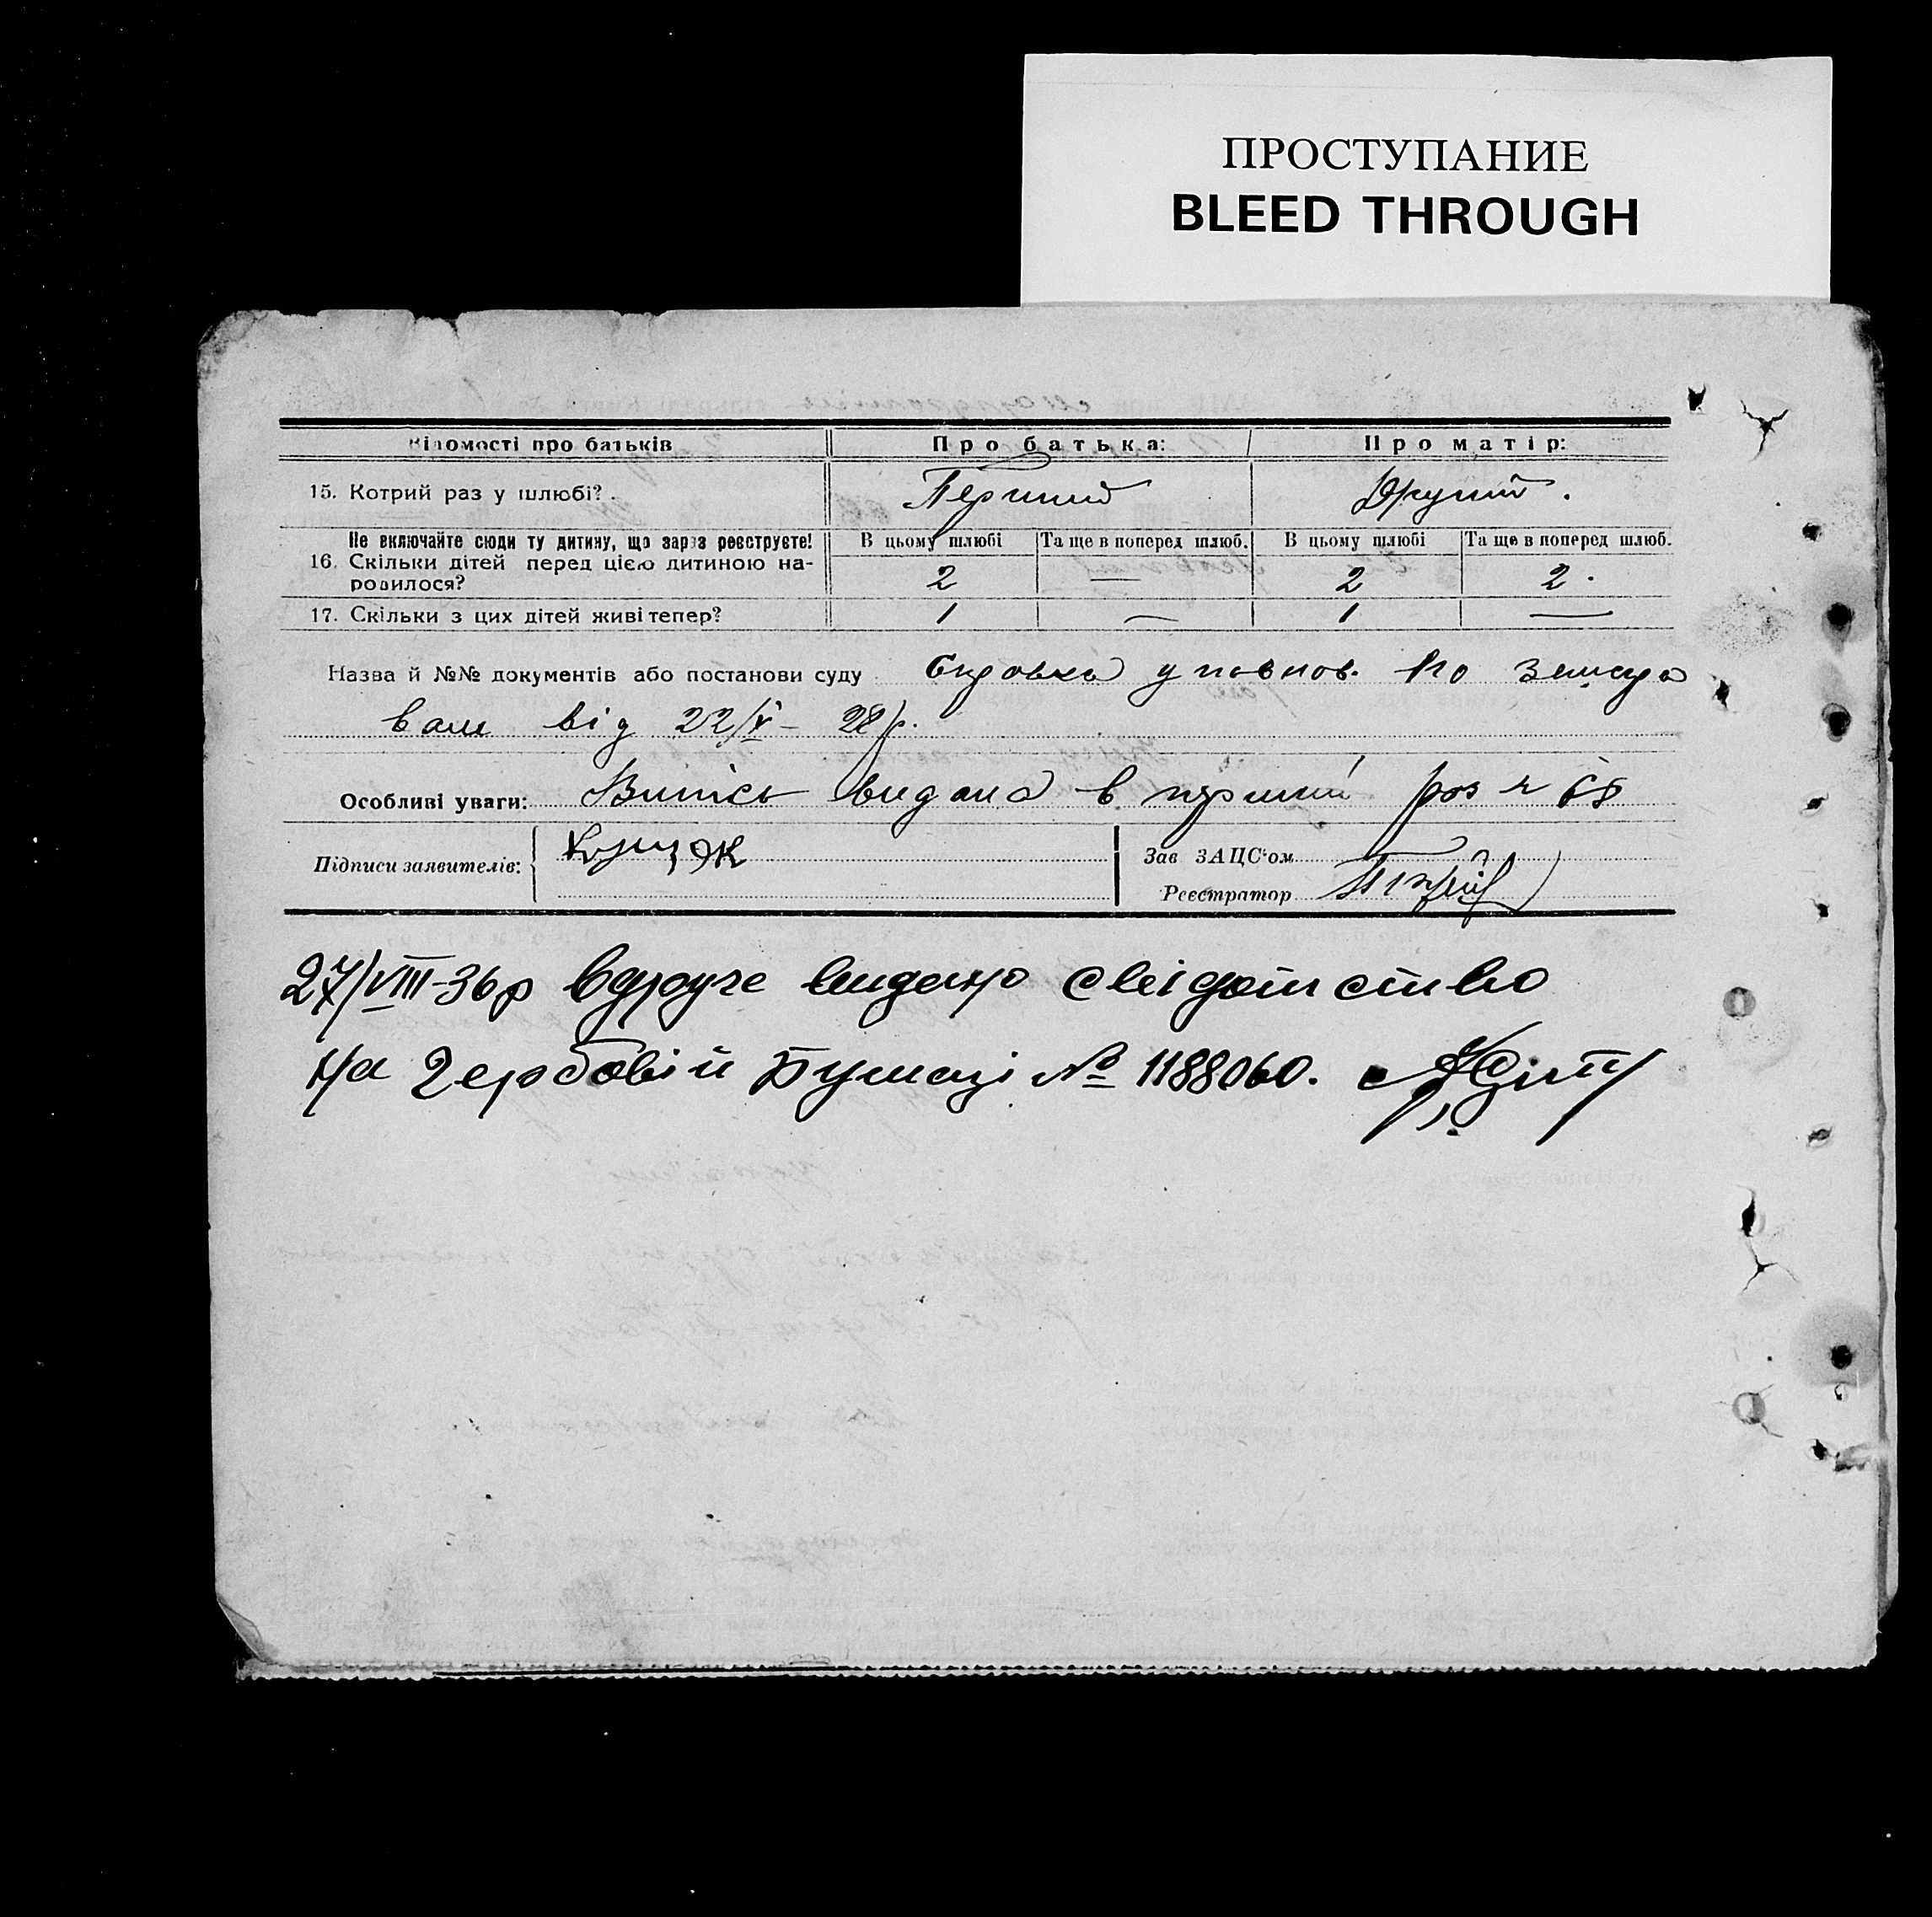 ПРОСТУПАНИЕ
BLEED THROUGH
Відомості про батьків Про батька: Про матір:
15. Котрий раз у шлюбі? Перший Другий.
Не включайте сюди ту дитину, що зараз реєструєте! В цьому шлюбі Та ще в поперед шлюб. В цьому шлюбі Та ще в поперед шлюб.
16. Скільки дітей перед цією дитиною на-
родилося? 2 — 2 2.
17. Скільки з цих дітей живі тепер? 1 — 1 —
Назва й №№ документів або постанови суду Справка уповнов. по
від 22/V – 28 р.
Особливі уваги: Випісь видана в перший раз
Підписи заявителів:
Зав ЗАЦС'ом
Реєстратор
27/VIII-36р вдруге видано свідотство
На гербовій бумазі № 1188060.